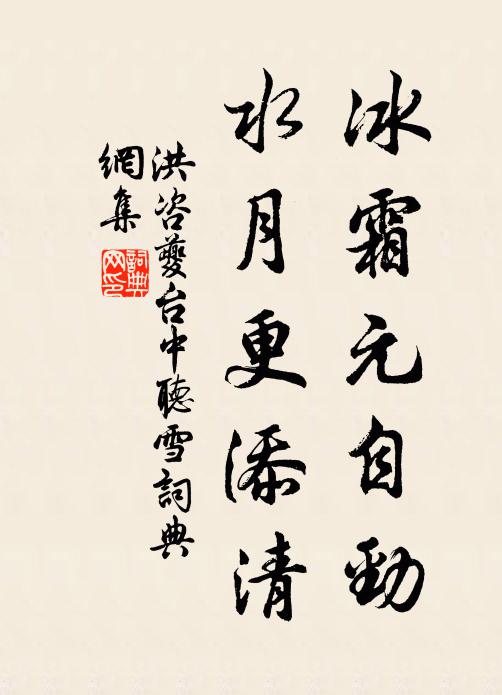 冰霜元自勁
水月更添清
洪咨夔台中聽雪詞典
網集
詞典
网印